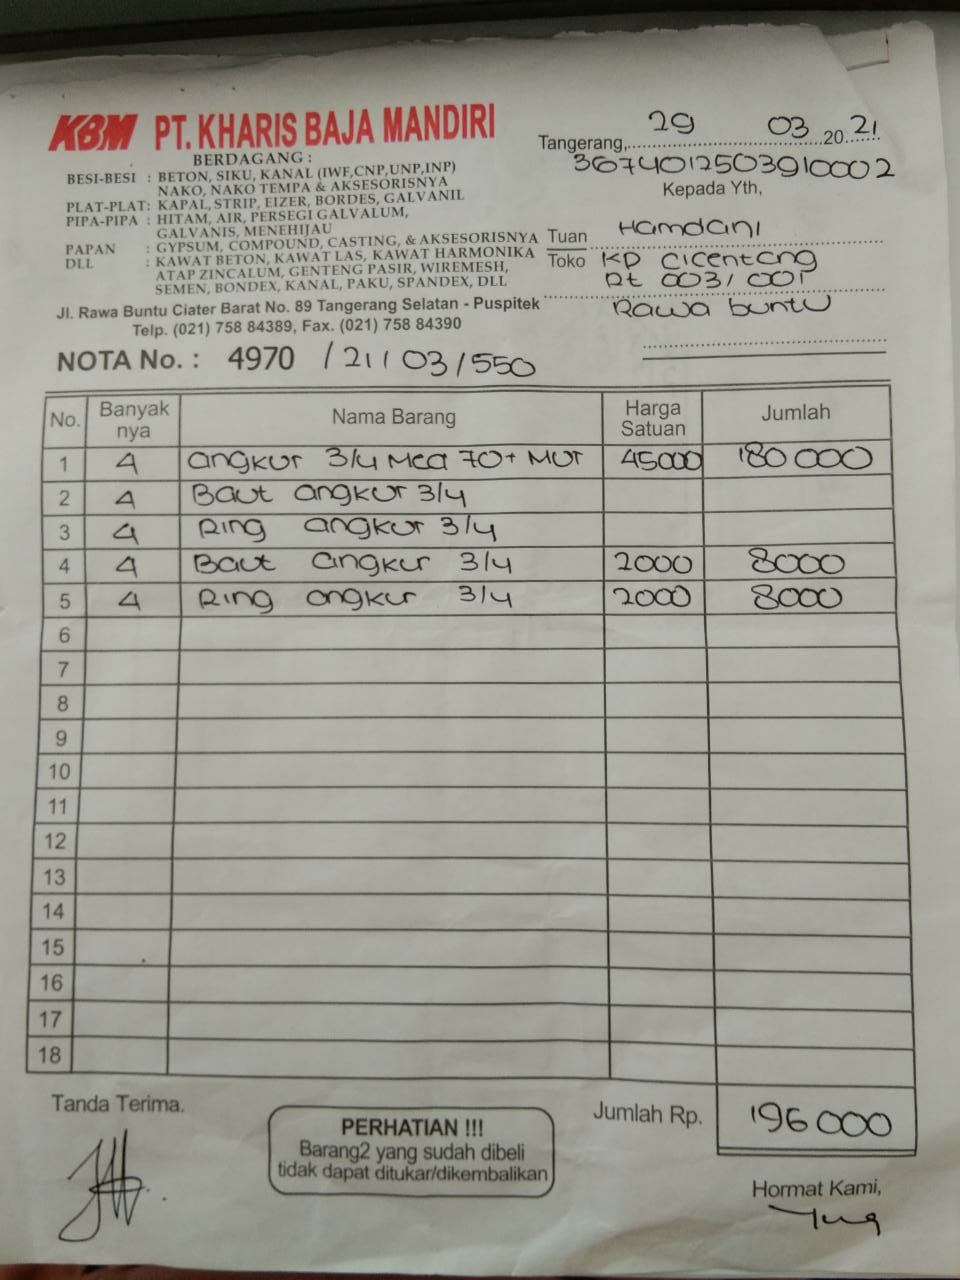 KBM PT. KHARIS BAJA MANDIRI
BERDAGANG :
BESI-BESI : BETON, SIKU, KANAL (IWF,CNP,UNP,INP)
NAKO, NAKO TEMPA & AKSESORISNYA
PLAT-PLAT: KAPAL, STRIP, EIZER, BORDES, GALVANIL
PIPA-PIPA : HITAM, AIR, PERSEGI GALVALUM,
GALVANIS, MENEHIJAU
PAPAN : GYPSUM, COMPOUND, CASTING, & AKSESORISNYA
DLL : KAWAT BETON, KAWAT LAS, KAWAT HARMONIKA
ATAP ZINCALUM, GENTENG PASIR, WIREMESH,
SEMEN, BONDEX, KANAL, PAKU, SPANDEX, DLL
Jl. Rawa Buntu Ciater Barat No. 89 Tangerang Selatan - Puspitek
Telp. (021) 758 84389, Fax. (021) 758 84390
Tangerang, 29 03 20 21
3674012503910002
Kepada Yth,
Tuan Hamdani
Toko KP Cicenteng
Rt 003/001
Rawa buntu
NOTA No. : 4970 /21/03/550
No. Banyak nya Nama Barang Harga Satuan Jumlah
1 4 angkur 3/4 Mea 70+ Mur 45000 180 000
2 4 Baut angkur 3/4
3 4 Ring angkur 3/4
4 4 Baut angkur 3/4 2000 8000
5 4 Ring angkur 3/4 2000 8000
6
7
8
9
10
11
12
13
14
15
16
17
18
Tanda Terima.
PERHATIAN !!!
Barang2 yang sudah dibeli
tidak dapat ditukar/dikembalikan
Jumlah Rp. 196 000
Hormat Kami,